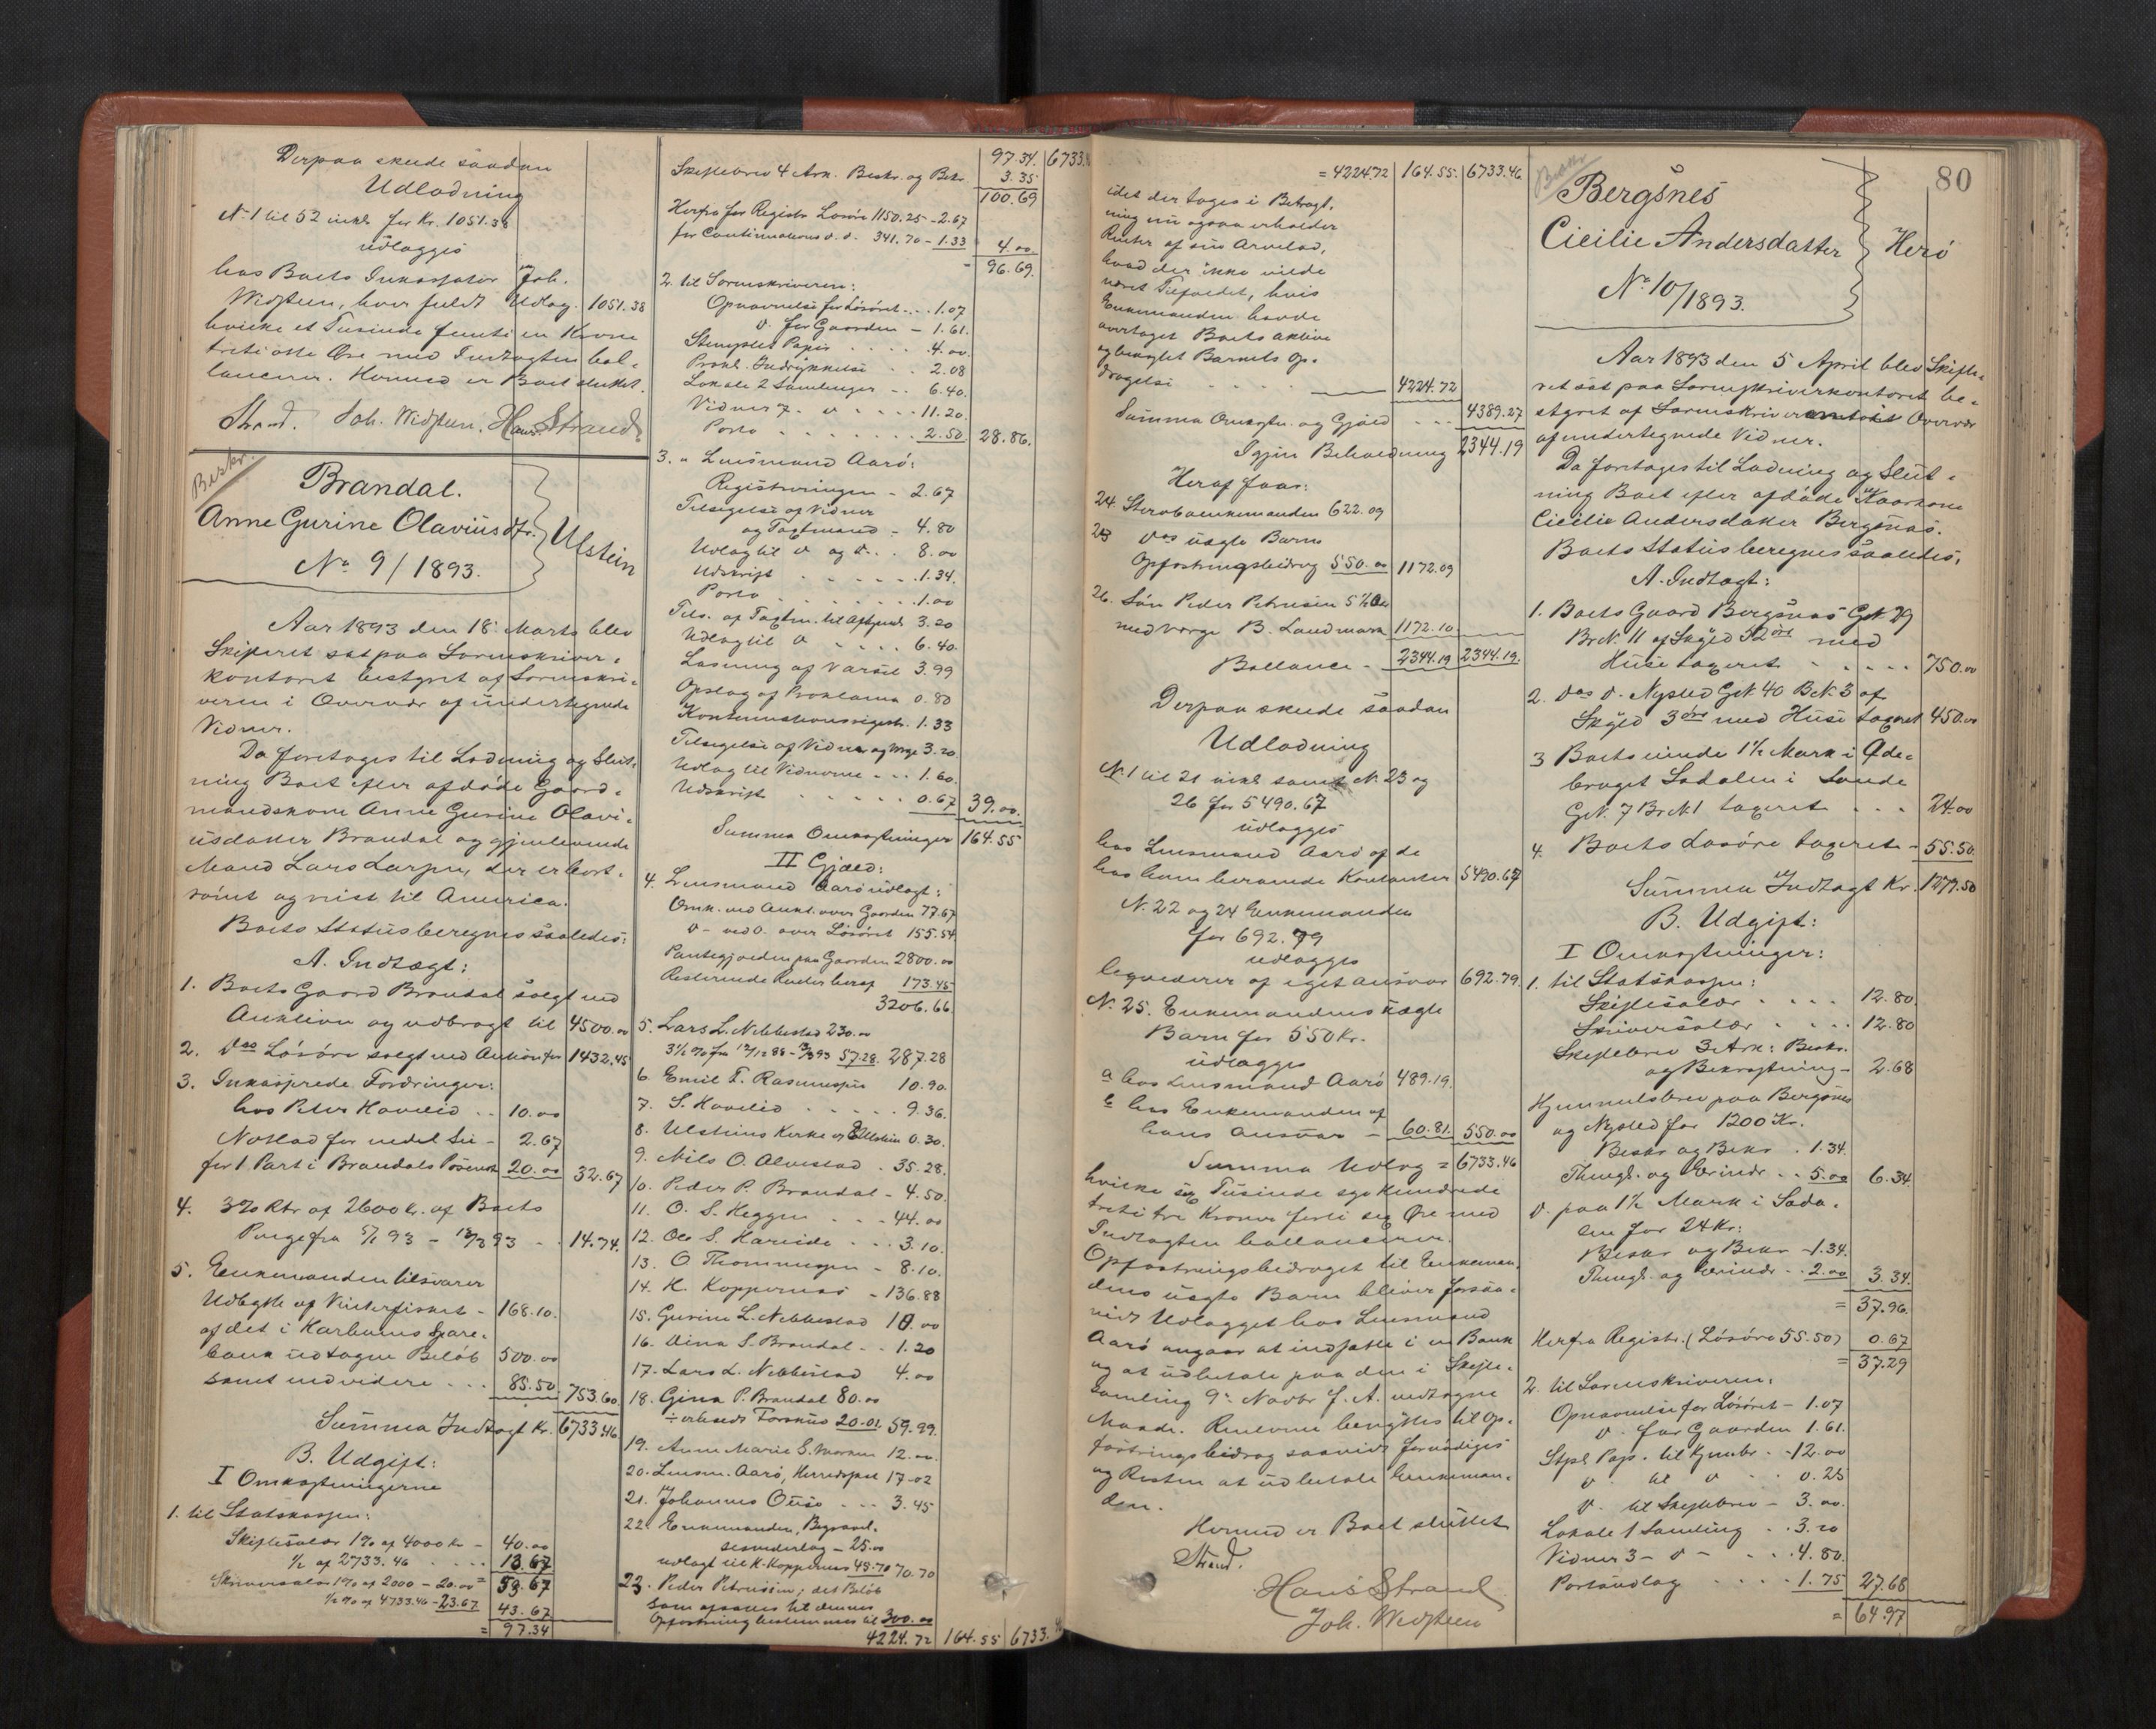 Derpaa skede saadan
Udlodning
No 1 til 52 inkl. for Kr. 1051.38
udlægges
hos Boets Inkassator Joh.
Widsteen, hvor fuldt Udlæg. 1051.38
hvilke et Tusinde femti en Krone
treti otte Øre med Indtægten bal-
lancerer. Hermed er Boet sluttet.
Strand. Joh. Widsteen. Hans Strand
Beskr.
Brandal.
Anne Gurine Olaviusdtr. Ulstein
No 9/1893.
Aar 1893 den 18 Marts blev
Skifteret sat paa Sorenskriver-
kontoret bestyret af Sorenskri-
veren i Overvær af undertegnede
Vidner.
Da foretoges til Lodning og Slut-
ning Boet efter afdøde Gaard-
mandskone Anne Gurine Olavi-
usdatter Brandal og gjenlevende
Mand Lars Larsen, der er bort-
rømt og reist til America.
Boets Status beregnes saaledes:
A. Indtægt:
1. Boets Gaard Brandal solgt ved
Auktion og udbragt til 4500.00
2. Das Løsøre solgt ved Auktion for 1432.45
3. Inkasserede Fordringer:
hos Peter Haveid .. 10.00
Notlod for nedel Sei - 2.67
for 1 Part i Brandals 20.00 32.67
4. 3% Rtr af 2600 kr. af Boets
Penge fra 5/1 93 - 18/3 93 - 14.74.
5. Enkemanden tilsvarer
Udbytte af Vinterfisket - 168.10.
af det i Spare-
bank udtagne Beløb 500.00
samt medvidere ... 85.50 753.60
Summa Indtægt Kr. 6733.46
B. Udgift:
I Omkostningerne
1. til Statskassen:
Skiftesalær 1% af 4000 kr - 40.00
1/2 af 2733.46 .... 13.67
Skriversalær 1% af 2000 - 20.00 = 53.67
1/2 % af 4733.46 - 23.67 43.67
= 97.34
97.34. 6733.46
Skiftebrev 4 Ark. Beskr. og Bekr. 3.35
100.69
Herfra for Registr. Løsøre 1150.25 - 2.67
for Continuations d. d. 341.70 - 1.33 4.00
96.69.
2. til Sorenskriveren:
Opnævnelse for Løsøret ... 1.07
d. for Gaarden - 1.61.
Stemplet Papir .... 4.00.
Prokl. Indrykkelse .. 2.08
Lokale 2 Samlinger .. 6.40.
Vidner 7. d .... 11.20.
Porto ...... 2.50. 28.86.
3. " Lensmand Aarø:
Registreringen - 2.67
Tilsigelse af Vidner
og Taxtmænd - 4.80
Udlæg til d og d. . 8.00
Udskrift ..... 1.34.
Porto ...... 1.00
Tils. af Taxtm. til 3.20
Udlæg til d .... 6.40.
Læsning af Varsel 3.99
Opslag af Proklama 0.80
Kontinuationsregistr. 1.33
Tilsigelse af Vidner og Vrge 3.20
Udlæg til Vidnerne ... 1.60.
Udskrift ..... 0.67 39.00.
Summa Omkostninger 164.55
II Gjæld:
4. Lensmand Aarø udlagt:
Omk. ved Aukt. over Gaarden 77.67
d - ved d. over Løsøret 155.54
Pantegjælden paa Gaarden 2800.00
Resterende Renter heraf 173.45
3206.66.
5. Lars L. Nebbestad 230.00
3 1/2 % fra 12/12 88 - 18/3 93 57.28. 287.28
6. Emil T. Rasmussen 10.90.
7. S. Haveid ..... 9.36.
8. Ulsteins Kirke og Ulstein 0.30.
9. Nils O. Alvestad . 35.28.
10. Peder P. Brandal - 4.50.
11. O. S. Heggen ... 44.00
12. Ole S. Hareide ... 3.10.
13. O. Thommesen - 8.10.
14. K. Koppernæs - 136.88
15. Gurine L. Nebbestad 10.00
16. Dina S. Brandal . . 1.20
17. Lars L. Nebbestad 4.00
18. Gina P. Brandal 80.00
÷ erholdt Forskud 20.01. 59.99.
19. Anne Marie S. 12.00.
20. Lensm. Aarø, Herredsskat 17.02
21. Johannes Ouse ... 3.45
22. Enkemanden, Begravel-
sesvederlag - 25.00
udlagt til K. Koppernæs 45.70 70.70
23. Peder Petrusen; det Beløb
som afsættes til dennes
Opfostring bestemmes til 300.00
4224.72 164.55 6733.46
= 4224.72 164.55. 6733.46.
idet der tages i Betragt-
ning nu ogsaa erholder
Renter af sin Arvelod,
hvad der ikke vilde
været Tilfældet, hvis
Enkemanden havde
overtaget Boets aktiva
og besørget Barnets Op-
dragelse .... 4224.72
Summa Omkostn. og Gjæld ... 4389.27
Igjen Beholdning 2344.19
Heraf faar:
24. Sterboenkemanden 622.09
25 Das uægte Barn
Opfostringsbidrag 550.00 1172.09
26. Søn Peder Petrusen 5 1/2 Aar
med Verge B. Landmark 1172.10.
Ballance - 2344.19 2344.19.
Derpaa skede saadan
Udlodning
No 1 til 21 inkl. samt No 23 og
26 for 5490.67
udlægges
hos Lensmand Aarø af de
hos ham beroende Kontanter 5490.67
No. 22 og 24 Enkemanden
for 692.79
udlægges
liqviderer af eget ansvar 692.79.
No. 25. Enkemandens uægte
Barn for 550 Kr.
udlægges
a hos Lensmand Aarø 489.19.
b hos Enkemanden af
hans ansvar - 60.81. 550.00
Summa Udlæg = 6733.46
hvilke sex Tusinde syv hundrede
treti tre Kroner forti sex Øre med
Indtægten ballancerer.
Opfostringsbidraget til Enkeman-
dens uægte Barn bliver forsaa-
vidt Udlægget hos Lensmand
Aarø angaar at indsætte i en Bank
og at udbetale paa den i Skifte-
samling 9de Novbr f. A. vedtagne
Maade. Renterne benyttes til Op-
fostringsbidrag saavidt fornødiges
og Resten at udbetale Enkeman-
den.
Hermed er Boet sluttet
Strand.
Hans Strand
Joh. Widsteen
80
Beskr
Bergsnes
Cicilie Andersdatter Herø
No 10/1893.
Aar 1893 den 5 April blev Skifte-
ret sat paa Sorenskriverkontoret be-
styret af Sorenskriveren i Overvær
af undertegnede Vidner.
Da foretoges til Lodning og Slut-
ning Boet efter afdøde Kaarkone
Cicilie Andersdatter Bergsnæs.
Boets Status beregnes saaledes,
A. Indtægt:
1. Boets Gaard Bergsnæs GN. 29
BrN. 11 af Skyld 32 øre med
Huse taxeret ..... 750.00
2. Das d. Nysted GN. 40 BN. 3 af
Skyld 3 øre med Huse taxeret 450.00
3 Boets eiende 1 1/2 Mark i Øde-
bruget Sædalen i Sande
GN. 7 BrN. 1 taxeret ... 24.00
4. Boets Løsøre taxeret - 55.50.
Summa Indtægt Kr. 1279.50
B. Udgift:
I Omkostninger:
1. til Statskassen:
Skiftesalær .... 12.80.
Skriversalær .... 12.80
Skiftebrev 3 Ark: Beskr.
og Bekræftning - 2.68
Hjemmelsbrev paa Bergsnes
og Nysted for 1200 Kr.
Beskr og Bekr . 1.34.
Thingl. og Erindr .. 5.00 6.34.
d. paa 1 1/2 Mark i Sæda-
len for 24 Kr:
Beskr og Bekr - 1.34.
Thingl. og Erindr .. 2.00 3.34.
= 37.96.
Herfra Registr. (Løsøre 55.50) 0.67
= 37.29
2. til Sorenskriveren:
Opnævnelse for Løsøret - 1.07
d. for Gaarden 1.61.
Stpl. Pap. til Hjemlbr. - 12.00
d. til d .. 0.25
d. til Skiftebrev - 3.00.
Lokale 1 Samling .. 3.20
Vidner 3 - d - .... 4.80.
Portoudlæg .... 1.75 27.68
= 64.97